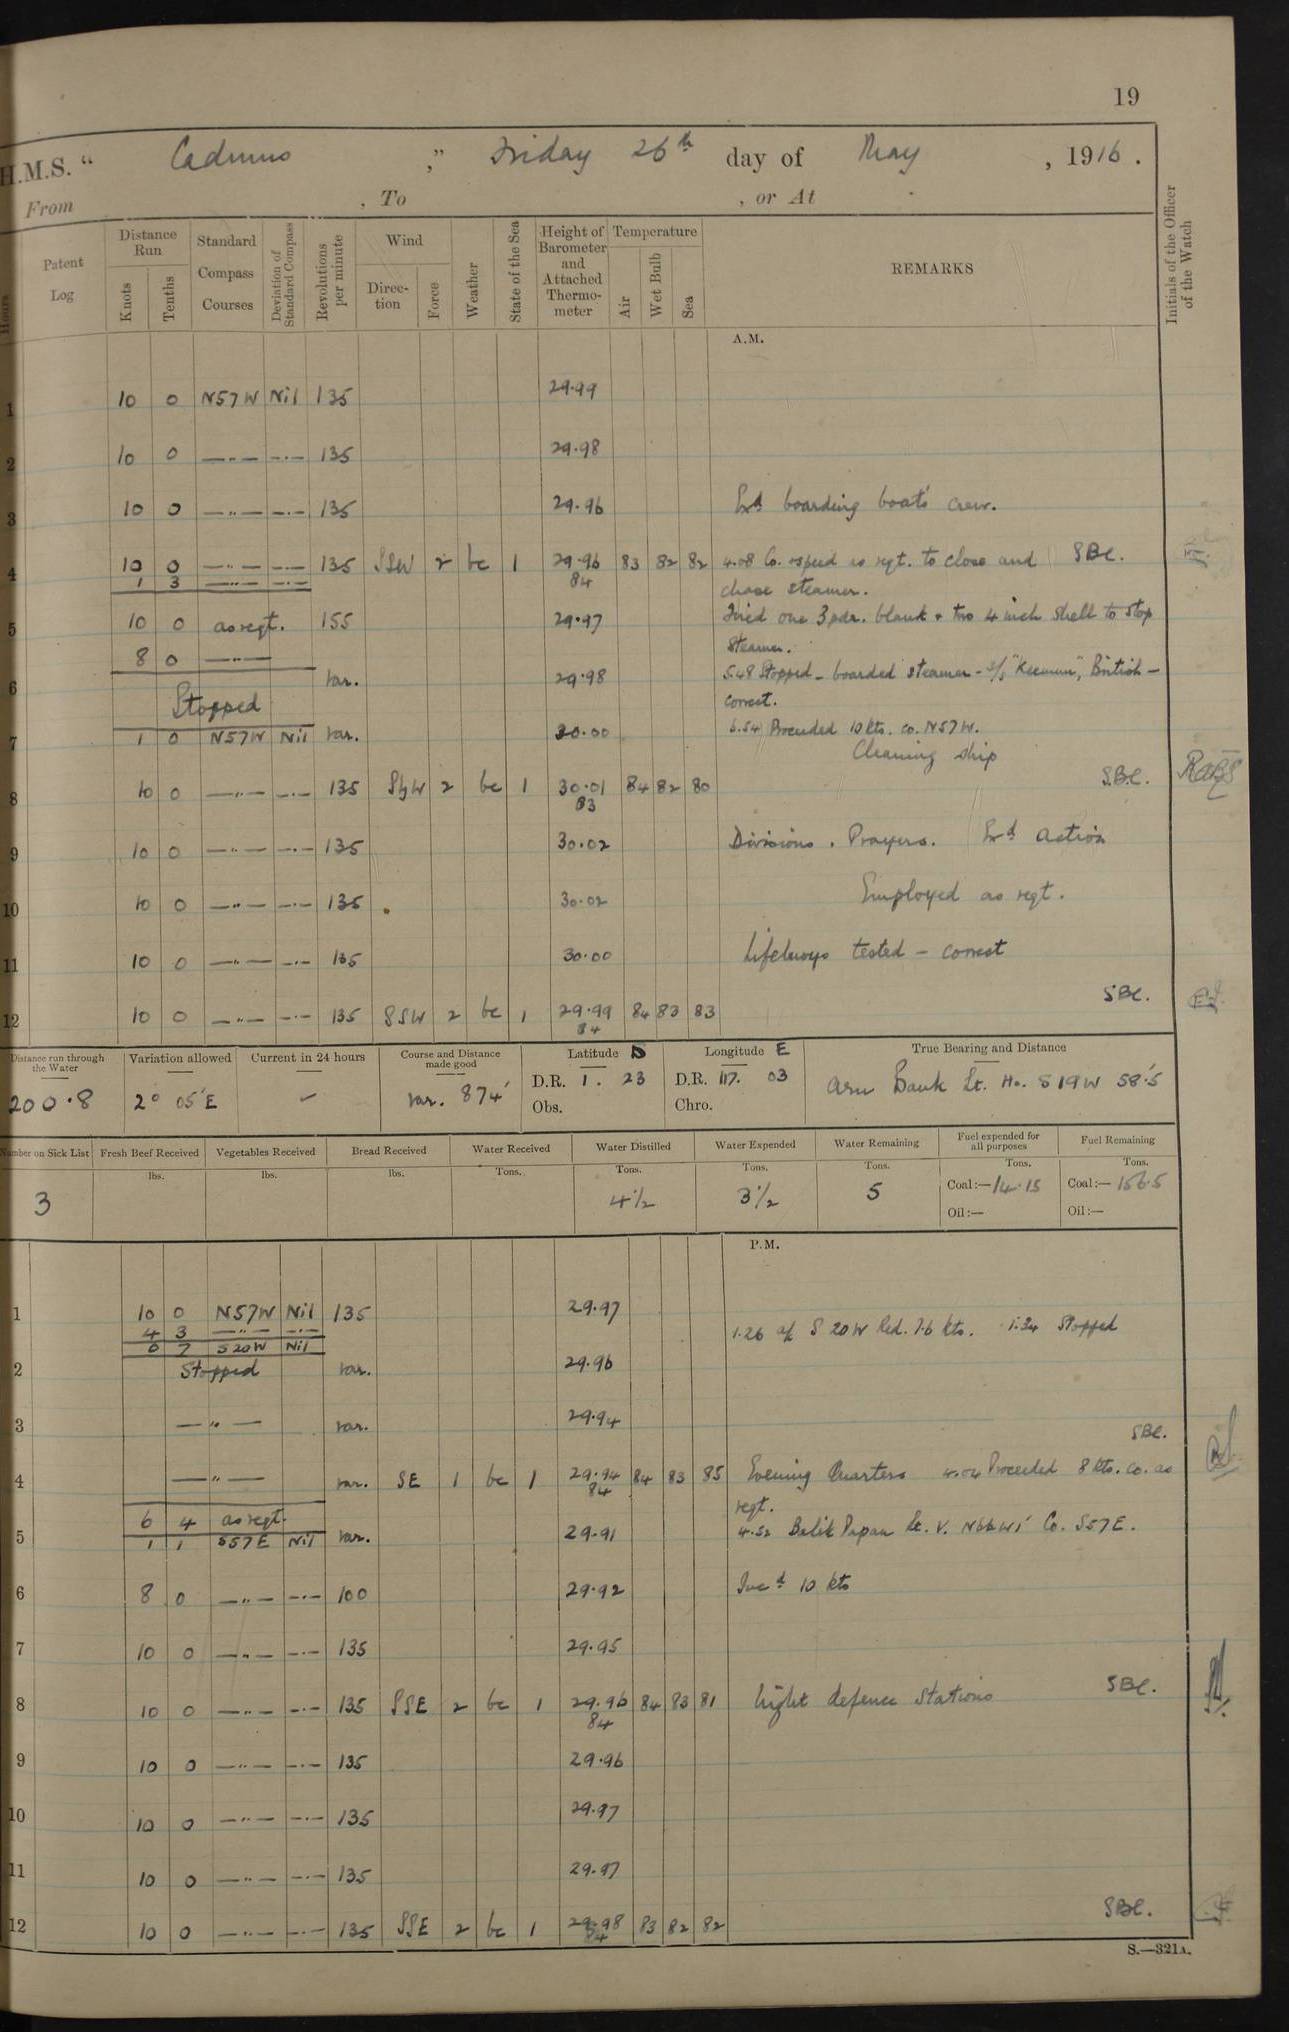 19
H.M.S. " Cadmus ," Friday 26th day of May , 1916 .
From , To , or At
Hours
Patent Log
Distance Run
Knots
Tenths
Standard Compass Courses
Deviation of Standard Compass
Revolutions per minute
Wind
Direc-tion
Force
Weather
State of the Sea
Height of Barometer and Attached Thermo-meter
Temperature
Air
Wet Bulb
Sea
REMARKS
Initials of the Officer of the Watch
A.M.
1 10 0 N57W Nil 135 29.99
2 10 0 —„— —·— 135 29.98
3 10 0 —„— —·— 135 29.96 Exd boarding boat's crew.
4 10 0 —„— —·— 135 SSW 2 bc 1 29.96 83 82 82 4.08 Co. & speed as reqt. to close and SBC.
1 3 —„— —·— 84 chase steamer.
5 10 0 as reqt. 155 29.97 Fired one 3 pdr. blank + two 4 inch shell to stop
8 0 —„— steamer.
6 var. 29.98 5.48 Stopped – boarded steamer – s/s "Keemun", British –
Stopped correct.
7 1 0 N57W Nil var. 30.00 6.54 Proceeded 10 kts. co. N57W.
Cleaning ship
8 10 0 —„— —·— 135 SbW 2 bc 1 30.01 84 82 80 SBC.
83
9 10 0 —„— —·— 135 30.02 Divisions . Prayers. Exd action
10 10 0 —„— —·— 135 30.02 Employed as reqt.
11 10 0 —„— —·— 135 30.00 Lifebuoys tested – correct
12 10 0 —„— —·— 135 SSW 2 bc 1 29.99 84 83 83 SBC.
84
Distance run through the Water
200.8
Variation allowed
2° 05'E
Current in 24 hours
Course and Distance made good
var. 87½'
Latitude S
D.R. 1 . 23
Obs.
Longitude E
D.R. 117. 03
Chro.
True Bearing and Distance
Aru Bank Lt. Ho. S 19W 58'.5
Number on Sick List
3
Fresh Beef Received
lbs.
Vegetables Received
lbs.
Bread Received
lbs.
Water Received
Tons.
Water Distilled
Tons.
4½
Water Expended
Tons.
3½
Water Remaining
Tons.
5
Fuel expended for all purposes
Tons.
Coal:— 14.15
Oil:—
Fuel Remaining
Tons.
Coal:— 156.5
Oil:—
P.M.
1 10 0 N57W Nil 135 29.97
4 3 —„— —·— 1.26 a/c S 20W Red. 7.6 kts. 1.34 Stopped
0 7 S20W Nil
2 Stopped var. 29.96
3 —„— var. 29.94 SBC.
4 —„— var. SE 1 bc 1 29.94 84 83 85 Evening Quarters 4.04 Proceeded 8 kts. co. as
84 reqt.
6 4 as reqt.
5 1 1 S57E Nil var. 29.91 4.52 Balik Papan Lt. V. N66W1' Co. S57E.
6 8 0 —„— —·— 100 29.92 Incd 10 kts
7 10 0 —„— —·— 135 29.95
8 10 0 —„— —·— 135 SSE 2 bc 1 29.96 84 83 81 Night defence Stations SBC.
84
9 10 0 —„— —·— 135 29.96
10 10 0 —„— —·— 135 29.97
11 10 0 —„— —·— 135 29.97
12 10 0 —„— —·— 135 SSE 2 bc 1 29.98 83 82 82 SBC.
84
S.—321A.